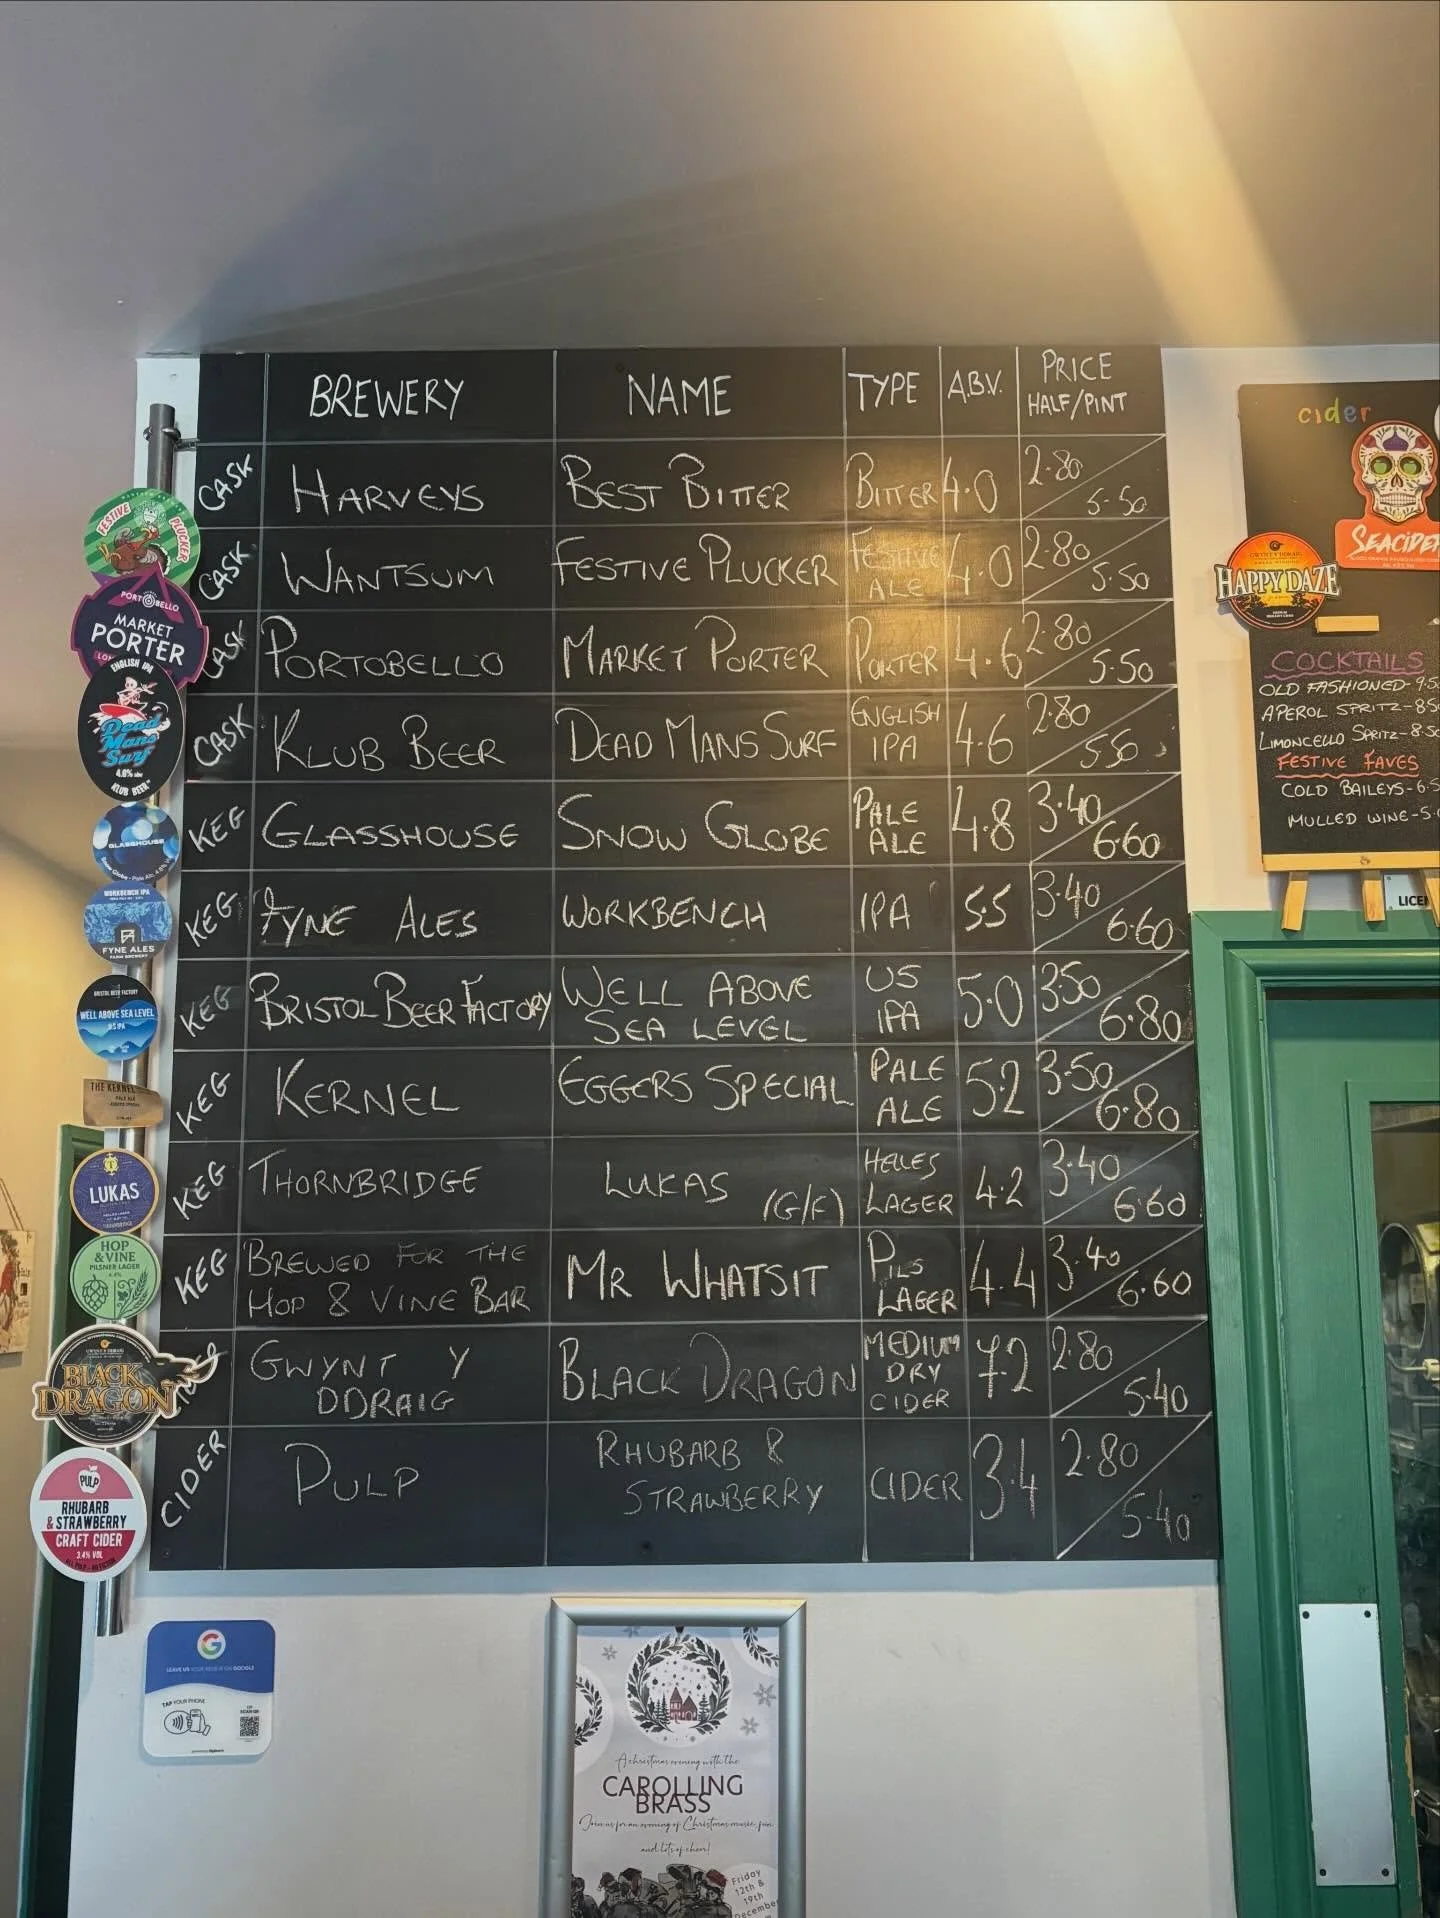 BREWERY NAME TYPE A.B.V. PRICE HALF/PINT
CASK HARVEYS BEST BITTER BITTER 4.0 2.80 5.50
CASK WANTSUM FESTIVE PLUCKER FESTIVE ALE 4.0 2.80 5.50
CASK PORTOBELLO MARKET PORTER PORTER 4.6 2.80 5.50
CASK KLUB BEER DEAD MANS SURF ENGLISH IPA 4.6 2.80 5.50
KEG GLASSHOUSE SNOW GLOBE PALE ALE 4.8 3.40 6.60
KEG FYNE ALES WORKBENCH IPA 5.5 3.40 6.60
KEG BRISTOL BEER FACTORY WELL ABOVE SEA LEVEL US IPA 5.0 3.50 6.80
KEG KERNEL EGGERS SPECIAL PALE ALE 5.2 3.50 6.80
KEG THORNBRIDGE LUKAS (G/F) HELLES LAGER 4.2 3.40 6.60
KEG BREWED FOR THE HOP & VINE BAR MR WHATSIT PILS LAGER 4.4 3.40 6.60
GWYNT Y DDRAIG BLACK DRAGON MEDIUM DRY CIDER 7.2 2.80 5.40
CIDER PULP RHUBARB & STRAWBERRY CIDER 3.4 2.80 5.40
FESTIVE PLUCKER
PORTOBELLO
MARKET
PORTER
ENGLISH IPA
Dead
Mans
Surf
4.6% abv
KLUB BEER
GLASSHOUSE
WORKBENCH IPA
FYNE ALES
FARM BREWERY
BRISTOL BEER FACTORY
WELL ABOVE SEA LEVEL
US IPA
THE KERNEL
PALE ALE
LUKAS
HOP
& VINE
PILSNER LAGER
4.4%
BLACK
DRAGON
PULP
RHUBARB
& STRAWBERRY
CRAFT CIDER
3.4% VOL
cider
SEACIDER
HAPPY DAZE
COCKTAILS
OLD FASHIONED-9.50
APEROL SPRITZ-8.50
LIMONCELLO SPRITZ-8.50
FESTIVE FAVES
COLD BAILEYS-6.5
MULLED WINE-5.
LICEN
G
LEAVE US YOUR REVIEW ON GOOGLE
TAP YOUR PHONE
OR
SCAN QR
A christmas evening with the
CAROLLING
BRASS
Join us for an evening of Christmas music, fun
and lots of cheer!
Friday
12th &
19th
December